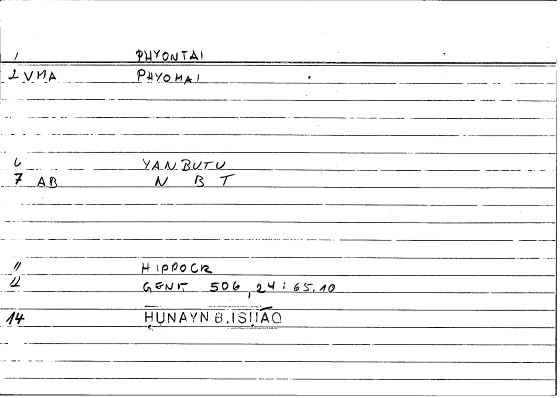 1 PHYONTAI
2 VMA PHYOMAI
6 YANBUTU
7 AB N B T
11 HIPPOCR
12 GENIT 506, 24 : 65.10
14 ḤUNAYN B. ISḤĀQ